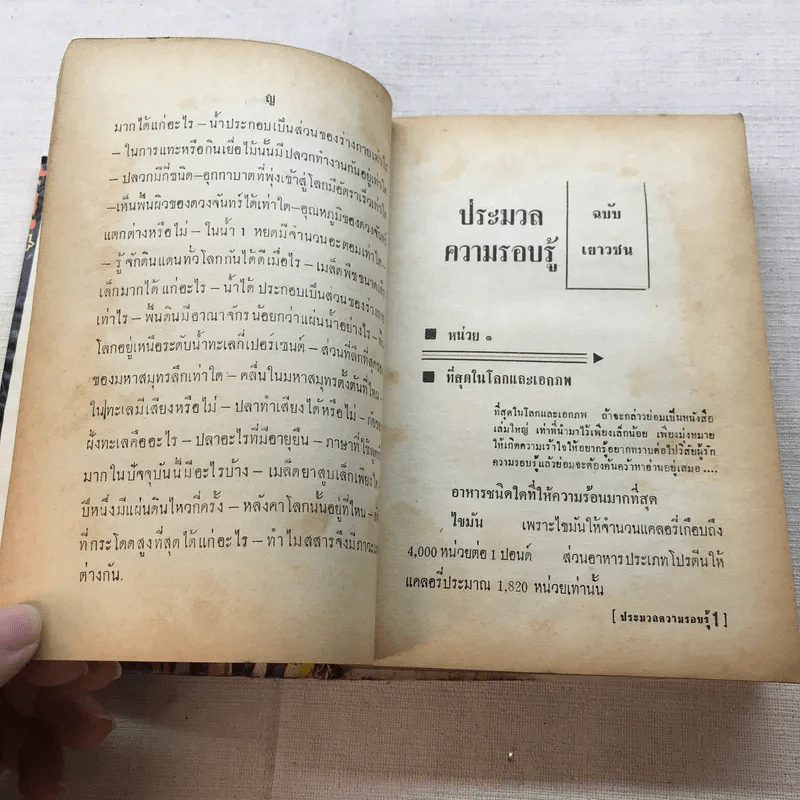 ญ
มากได้แก่อะไร – น้ำประกอบเป็นส่วนของร่างกายเท่าไร
– ในการแทะหรือกินเยื่อไม้นั้นมีปลวกทำงานกันอยู่เท่าใด
– ปลวกมีกี่ชนิด – อุกกาบาตที่พุ่งเข้าสู่โลกมีอัตราเร็วเท่าใด
– เห็นพื้นผิวของดวงจันทร์ได้เท่าใด – อุณหภูมิของดวงจันทร์
แตกต่างหรือไม่ – ในน้ำ 1 หยดมีจำนวนอะตอมเท่าใด –
– รู้จักดินแดนทั่วโลกกันได้ดีเมื่อไร – เมล็ดพืชขนาด
เล็กมากได้แก่อะไร – น้ำได้ประกอบเป็นส่วนของร่างกาย
เท่าไร – พื้นดินมีอาณาจักรน้อยกว่าแผ่นน้ำอย่างไร –
โลกอยู่เหนือระดับน้ำทะเลกี่เปอร์เซนต์ – ส่วนที่ลึกที่สุด
ของมหาสมุทรลึกเท่าใด – คลื่นในมหาสมุทรตั้งต้นที่ไหน
– ในทะเลมีเสียงหรือไม่ – ปลาทำเสียงได้หรือไม่ –
ฝั่งทะเลคืออะไร – ปลาอะไรที่มีอายุยืน – ภาษาที่ใช้พูด
มากในปัจจุบันนี้มีอะไรบ้าง – เมล็ดยาสูบเล็กเพียงใด
ปีหนึ่งมีแผ่นดินไหวกี่ครั้ง – หลังคาโลกนั้นอยู่ที่ไหน –
ที่กระโดดสูงที่สุดได้แก่อะไร – ทำไมสสารจึงมีภาวะ
ต่างกัน.
ประมวล
ความรอบรู้
ฉบับ
เยาวชน
หน่วย ๑
ที่สุดในโลกและเอกภพ
ที่สุดในโลกและเอกภพ ถ้าจะกล่าวย่อมเป็นหนังสือ
เล่มใหญ่ เท่าที่นำมาไว้เพียงเล็กน้อย เพียงมุ่งหมาย
ให้เกิดความเร้าใจให้อยากรู้อยากทราบต่อไปวิสัยผู้รัก
ความรอบรู้แล้วย่อมจะต้องค้นคว้าหาอ่านอยู่เสมอ ....
อาหารชนิดใดที่ให้ความร้อนมากที่สุด
ไขมัน เพราะไขมันให้จำนวนแคลอรี่เกือบถึง
4,000 หน่วยต่อ 1 ปอนด์ ส่วนอาหารประเภทโปรตีนให้
แคลอรี่ประมาณ 1,820 หน่วยเท่านั้น
[ ประมวลความรอบรู้ 1 ]